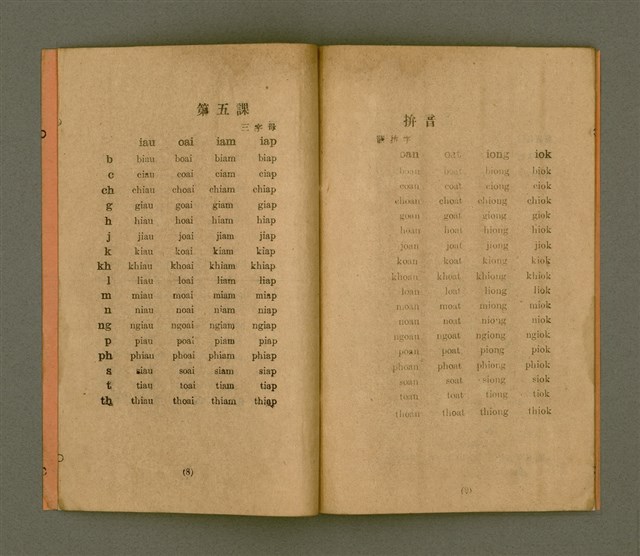 第五課
三字母
iau oai iam iap
b biau boai biam biap
c ciau coai ciam ciap
ch chiau choai chiam chiap
g giau goai giam giap
h hiau hoai hiam hiap
j jiau joai jiam jiap
k kiau koai kiam kiap
kh khiau khoai khiam khiap
l liau loai liam liap
m miau moai miam miap
n niau noai niam niap
ng ngiau ngoai ngiam ngiap
p piau poai piam piap
ph phiau phoai phiam phiap
s siau soai siam siap
t tiau toai tiam tiap
th thiau thoai thiam thiap
(8)
拚音
oan oat iong iok
boan boat biong biok
coan coat ciong ciok
choan choat chiong chiok
goan goat giong giok
hoan hoat hiong hiok
joan joat jiong jiok
koan koat kiong kiok
khoan khoat khiong khiok
loan loat liong liok
moan moat miong miok
noan noat niong niok
ngoan ngoat ngiong ngiok
poan poat piong piok
phoan phoat phiong phiok
soan soat siong siok
toan toat tiong tiok
thoan thoat thiong thiok
(9)